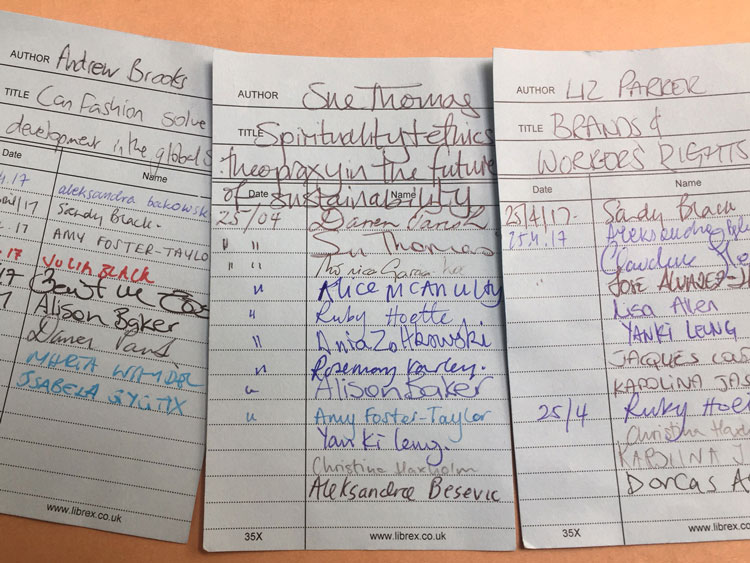 AUTHOR Andrew Brooks
TITLE Can Fashion solve
development in the global S
Date Name
4.17 aleksandra bakowsk
/17 Sandy Black.
.17 AMY FOSTER-TAYLO
.17 YULIA BLACK
17
Alison Baker
Daren
MARIA
ISABELA
www.librex.co.uk
AUTHOR Sue Thomas
TITLE Spirituality + ethics
theopraxy in the future
of sustainability
Date Name
25/04 Darren Parish
" " Su Thomas
" "
" ALICE MCANULTY
" Ruby Hoette
" Ania Zoltkowski
" Rosemary Varley.
" Alison Baker
" Amy Foster-Taylor
Yanki Leung.
Christina
Aleksandra Besevic
35X www.librex.co.uk
AUTHOR LIZ PARKER
TITLE BRANDS &
WORKERS' RIGHTS
Date Name
25/4/17. Sandy Black
25.4.17
Claudine
JOSE ALVAREZ-J
Lisa Allen
YANKI LEUNG
JACQUES COS
KAROLINA JAS
25/4 Ruby Hoe
Christina
KAROLINA J
Dorcas A
35X www.librex.co.uk